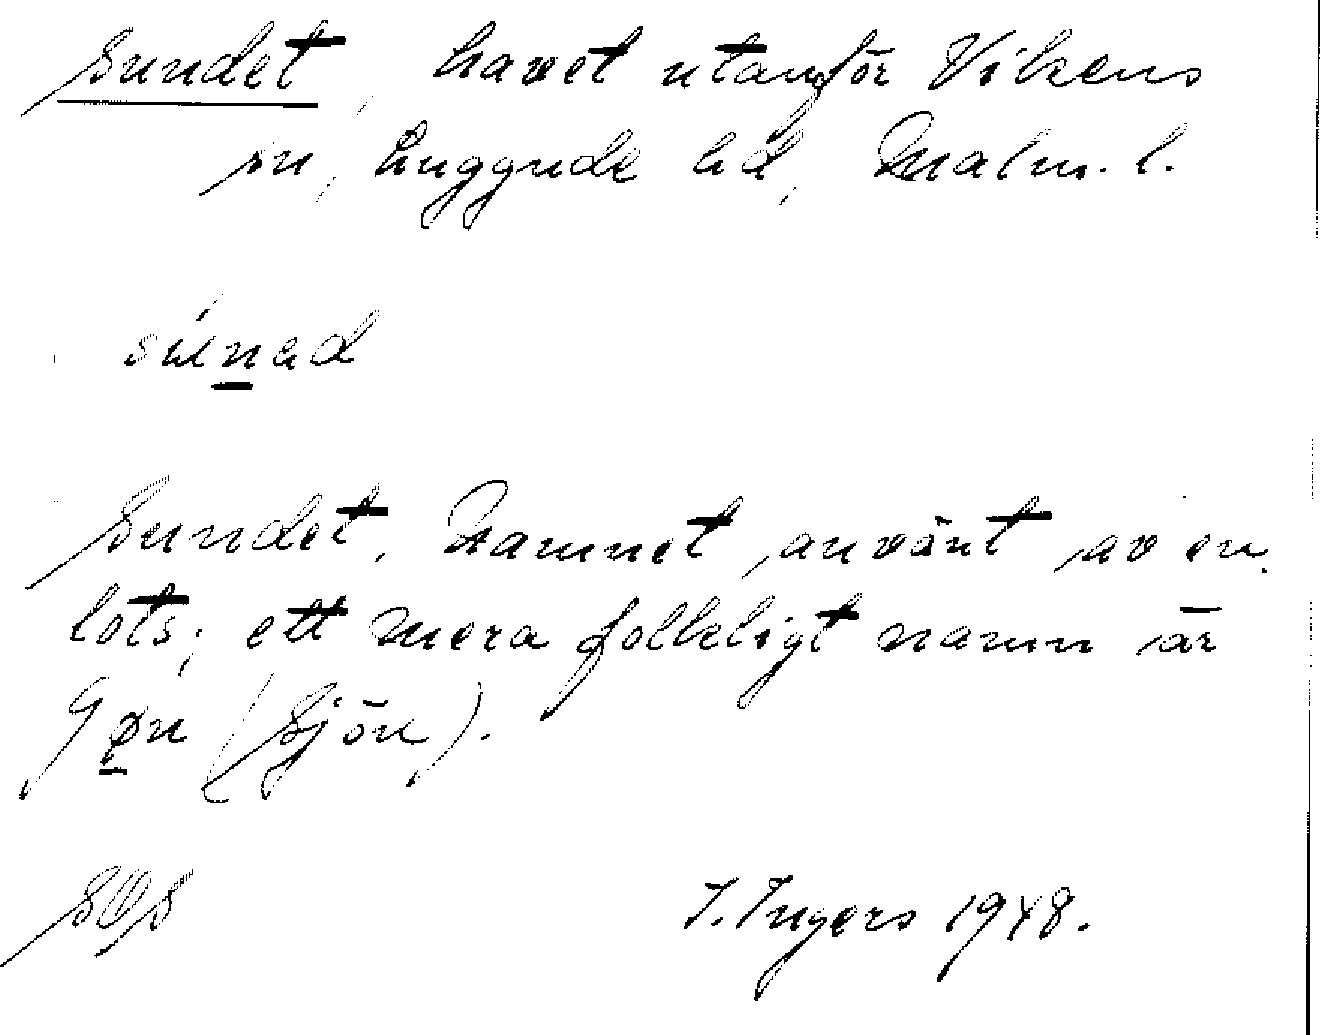 Sundet, havet utanför Vikens
sn, Luggude hd, Malm. l.
súnad
Sundet. Namnet använt av en
lots; ett mera folkeligt namn är
(Sjön).
SOS
I. Ingers 1948.